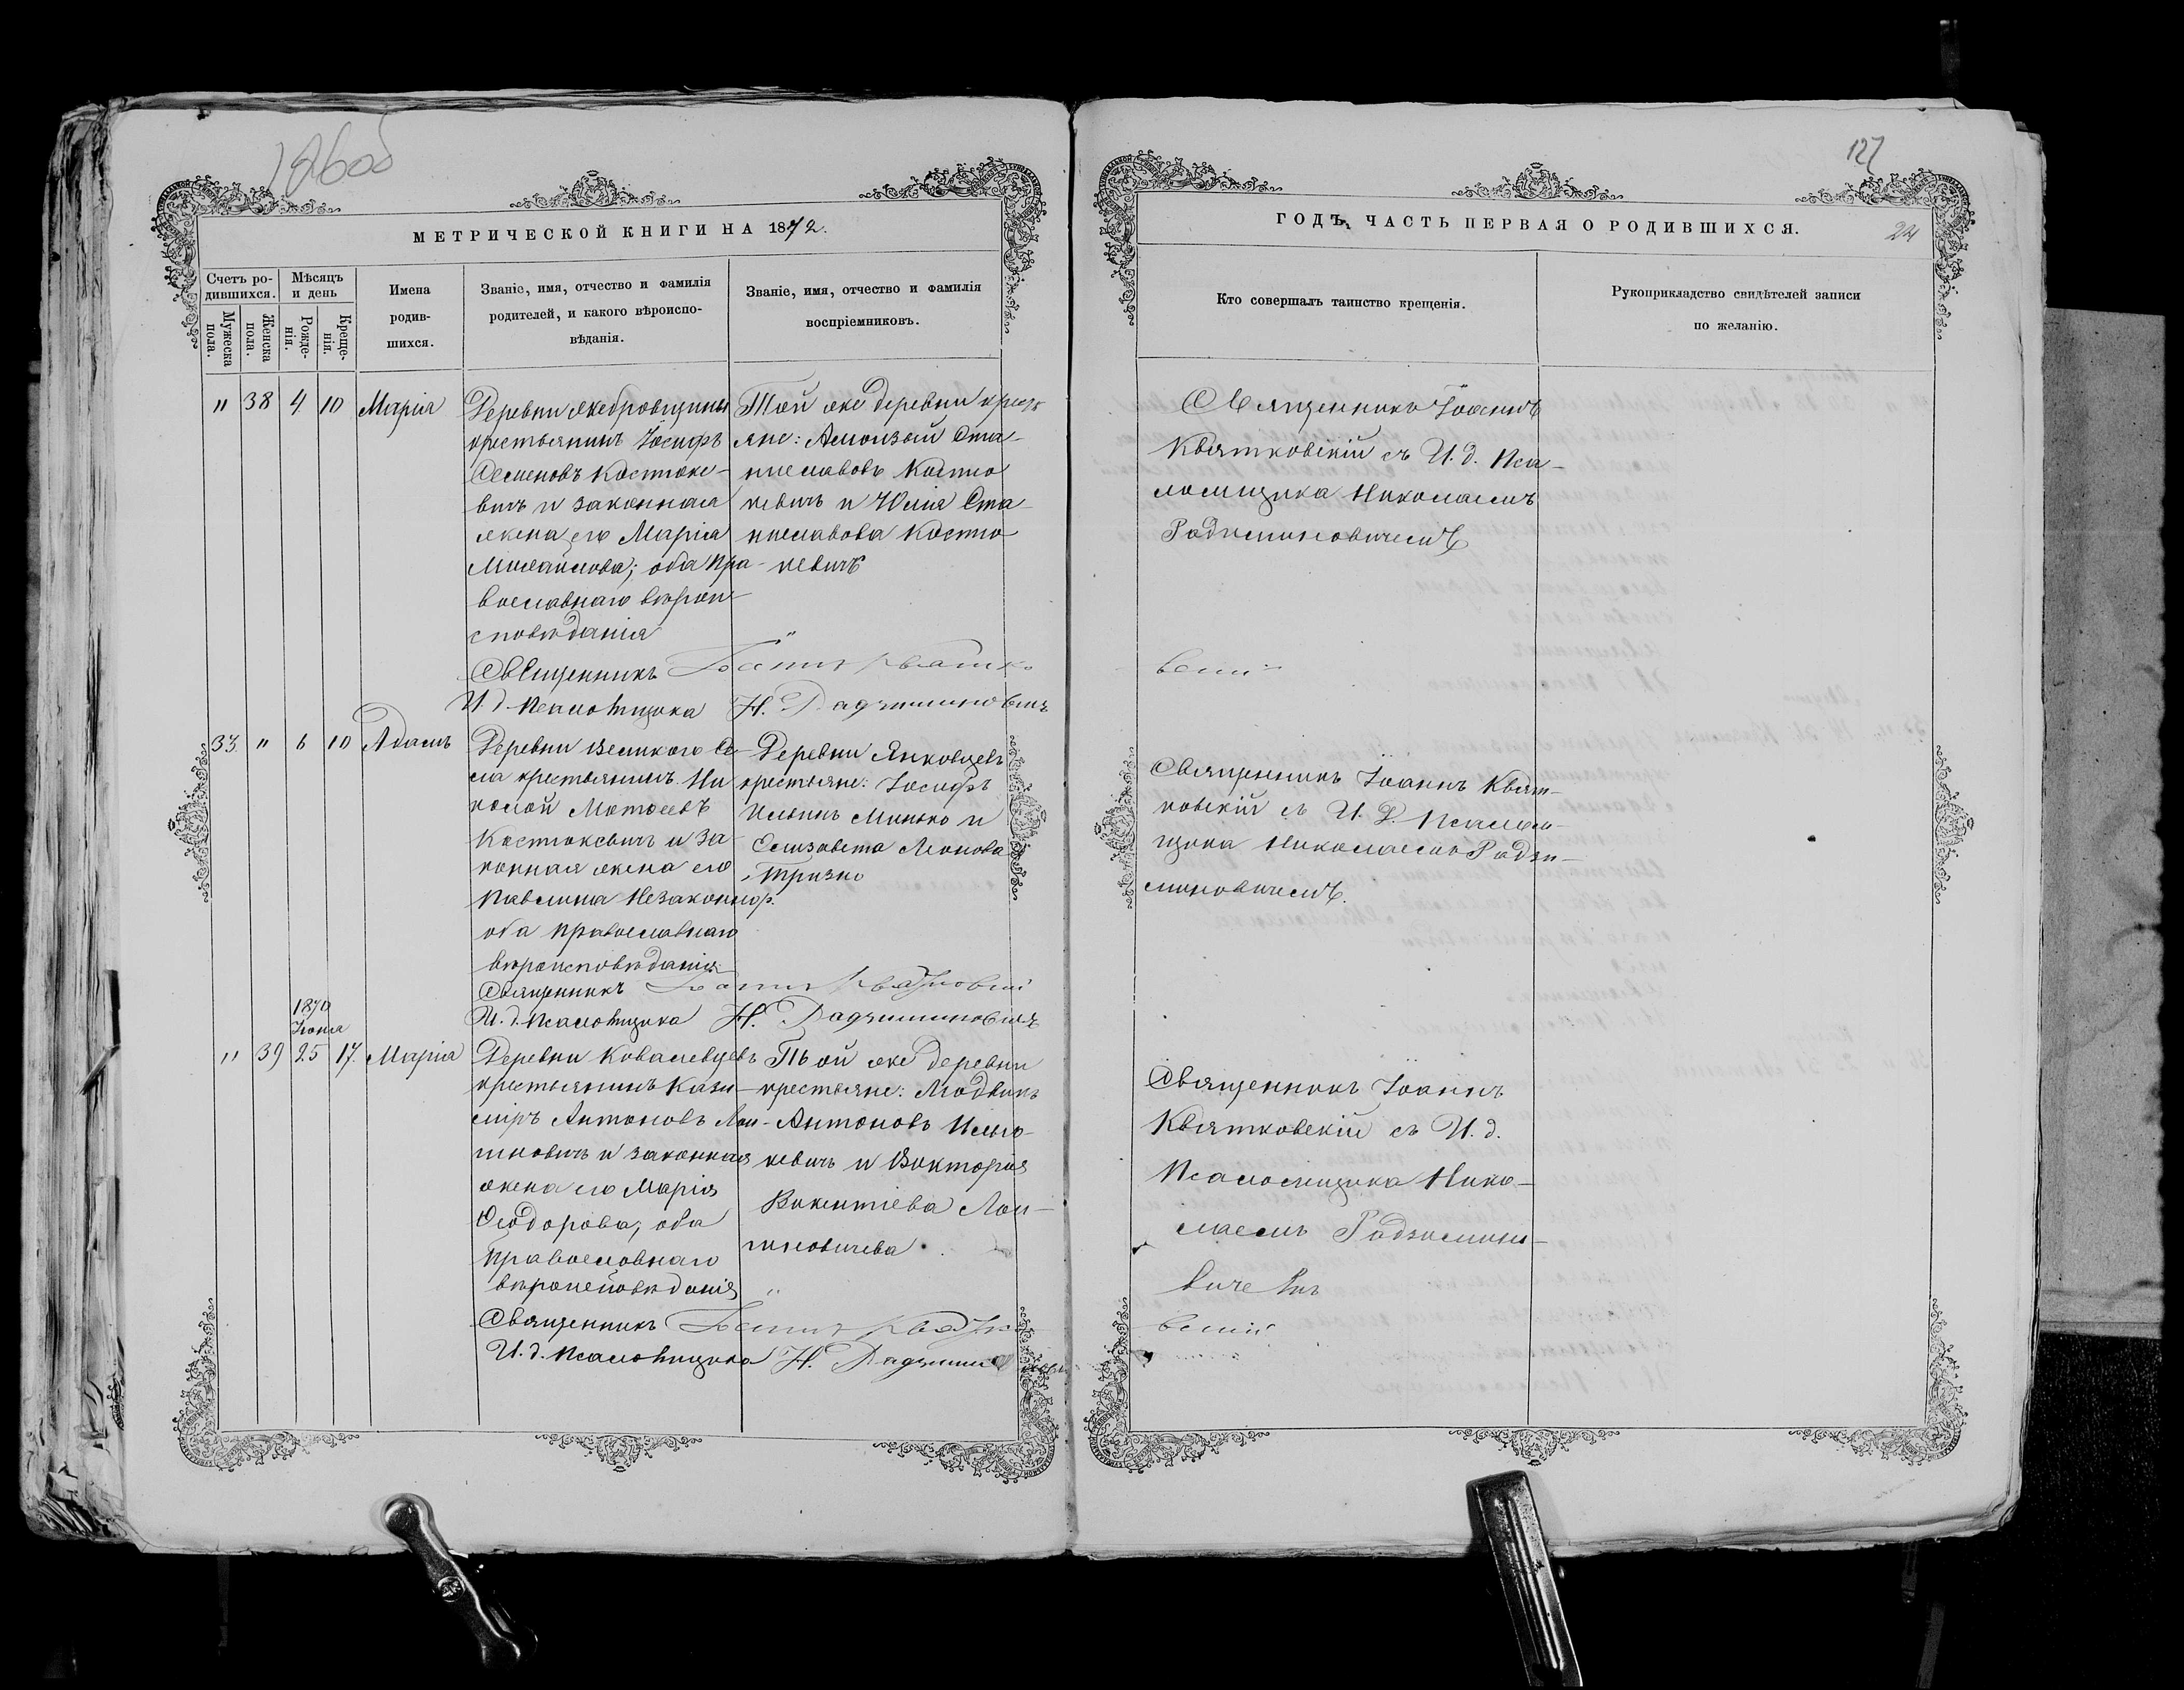 126об
127
МЕТРИЧЕСКОЙ КНИГИ НА 1872.
ГОДЪ, ЧАСТЬ ПЕРВАЯ О РОДИВШИХСЯ.
24
Счетъ ро-
дившихся.
Мужеска
пола.
Женска
пола.
Мѣсяцъ
и день
Рожде-
нія.
Креще-
нія.
Имена
родив-
шихся.
Званіе, имя, отчество и фамилія
родителей, и какого вѣроиспо-
вѣданія.
Званіе, имя, отчество и фамилія
воспріемниковъ.
Кто совершалъ таинство крещенія.
Рукоприкладство свидѣтелей записи
по желанію.
" 38 4 10 Марія
Деревни
крестьянинъ Іосифъ
Семеновъ Костюке-
вичъ и законная
жена его Марія
Михайлова; оба пра-
вославнаго вѣрои-
сповѣданія
Той же деревни крест
яне: Алоизый Ста-
ниславовъ Костю
кевичъ и Юлія Ста-
ниславова Костю
кевичъ
Священникъ Іоаннъ
Квятковскій съ И. д. Пса-
ломщика Николаемъ
Радзиминовичемъ
Священникъ Іоаннъ Квятко
вскій
И. д. Псаломщика Н. Радзиминовичъ
33 " 6 10 Адамъ
Деревни Великого Се-
ла крестьянинъ Ни
колай Матѳеевъ
Костюкевичъ и за-
конная жена его
Павлина Незаконнор.
оба православнаго
вѣроисповѣданія
Деревни Янковцевъ
крестьяне: Іосифъ
Ильинъ Минько и
Елизавета Леонова
Тризно
Священникъ Іоаннъ Квят-
ковскій съ И. Д. Псалом-
щика Николаемъ Радзи-
миновичемъ.
Священникъ Іоаннъ Квятковскій
И. д. Псаломщика Н. Радзиминовичъ
1870
Іюня
" 39 25 17. Марія
Деревни Ковалевцевъ
крестьянинъ Кази-
міръ Антоновъ Лон-
гиновичъ и законная
жена его Марія
Ѳеодорова; оба
православнаго
вѣроисповѣданія
Той же деревни
крестьяне: Людвикъ
Антоновъ
кевичъ и Викторія
Викентіева Лон-
гиновичева
Священникъ Іоаннъ
Квятковскій съ И. д.
Псаломщика Нико-
лаемъ Радзимино-
вичемъ
Священникъ Іоаннъ Квятко
вскій
И. д. Псаломщика Н. Радзиминовичъ